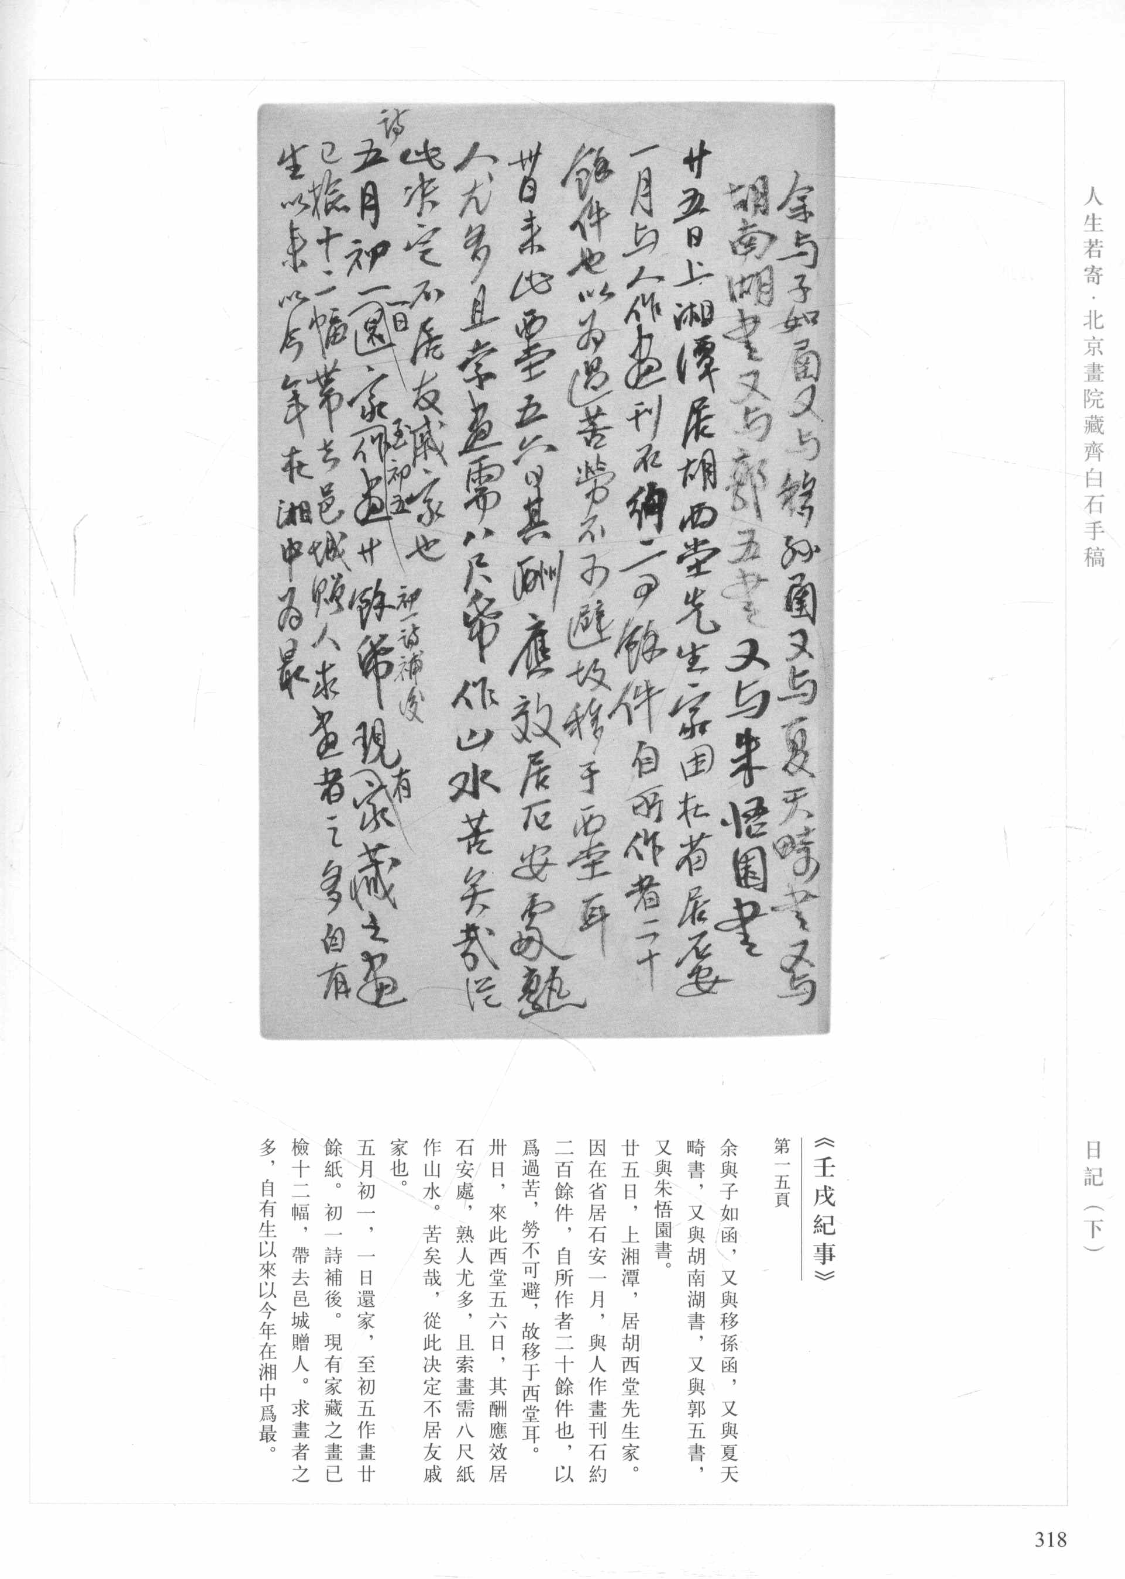 人生若寄·北京畫院藏齊白石手稿
日記（下）
余与子如函又与移孙函又与夏天畸書又与
胡南湖書又与郭五書又与朱悟園書
廿五日上湘潭居胡西堂先生家因在省居石安
一月与人作畫刊石約二百餘件自所作者二十
餘件也以为過苦勞不可避故移于西堂耳
卅日来此西堂五六日其酬應效居石安處熟
人尤多且索畫需八尺帋作山水苦矣哉從
此决定不居友戚家也
初一詩補後
一日
至初五
有
詩
五月初一還家作畫廿餘帋現家藏之畫
已檢十二幅帶去邑城贈人求畫者之多自有
生以来以今年在湘中为最
《壬戌紀事》
第一五頁
余與子如函，又與移孫函，又與夏天
畸書，又與胡南湖書，又與郭五書，
又與朱悟園書。
廿五日，上湘潭，居胡西堂先生家。
因在省居石安一月，與人作畫刊石約
二百餘件，自所作者二十餘件也，以
爲過苦，勞不可避，故移于西堂耳。
卅日，來此西堂五六日，其酬應效居
石安處，熟人尤多，且索畫需八尺紙
作山水。苦矣哉，從此决定不居友戚
家也。
五月初一，一日還家，至初五作畫廿
餘紙。初一詩補後。現有家藏之畫已
檢十二幅，帶去邑城贈人。求畫者之
多，自有生以來以今年在湘中爲最。
318